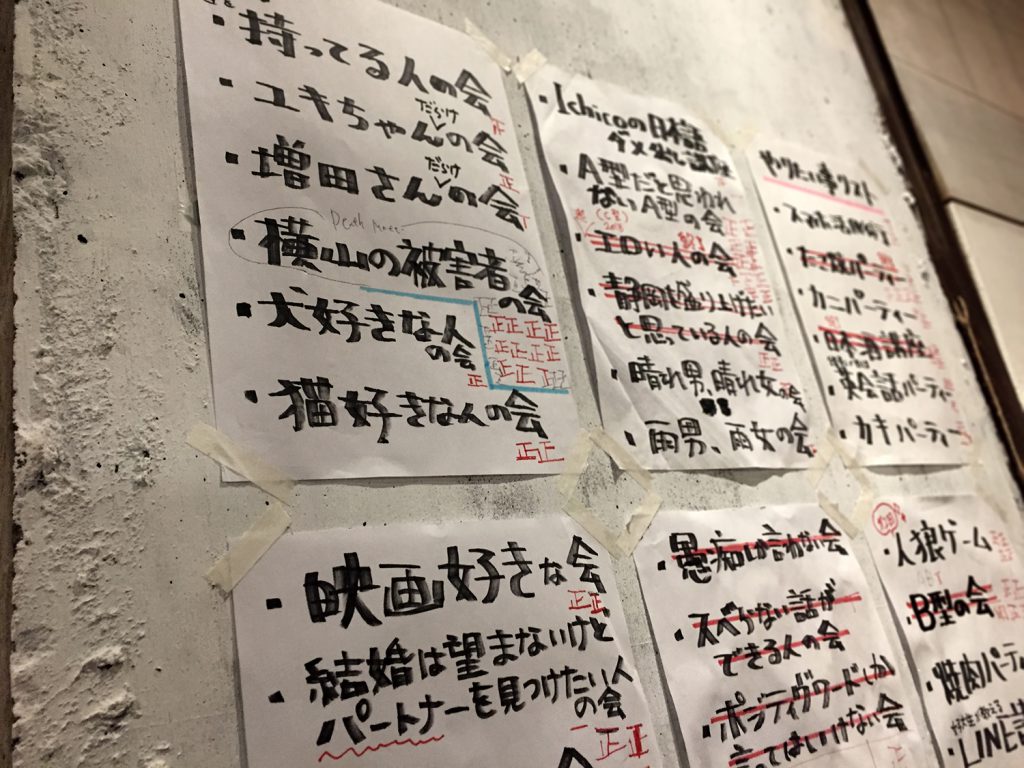 ・持ってる人の会
・ユキちゃんの会
だらけ
正
・増田さんの会
だらけ
・横山の被害者
の会
正正正正
正正正正
正正正
・犬好きな人
の会
正
・猫好きな人の会
正正
・Ichicoの日本語
ダメ出し
・A型だと思われ
ないA型の会
・エロい人の会
・静岡を盛り上げたい
と思っている人の会
・晴れ男、晴れ女の会
・雨男、雨女の会
やりたい事リスト
・たこ焼パーティー
・カニパーティー
・日本酒講座
・英会話パーティー
・カキパーティー
・映画好きな会
正正
・結婚は望まないけど
パートナーを見つけたい人
の会
正正
・愚痴しか言わない会
・スベらない話が
できる人の会
・ポジティブワードしか
言ってはいけない会
・人狼ゲーム
・B型の会
・焼肉パーティ
・LINE